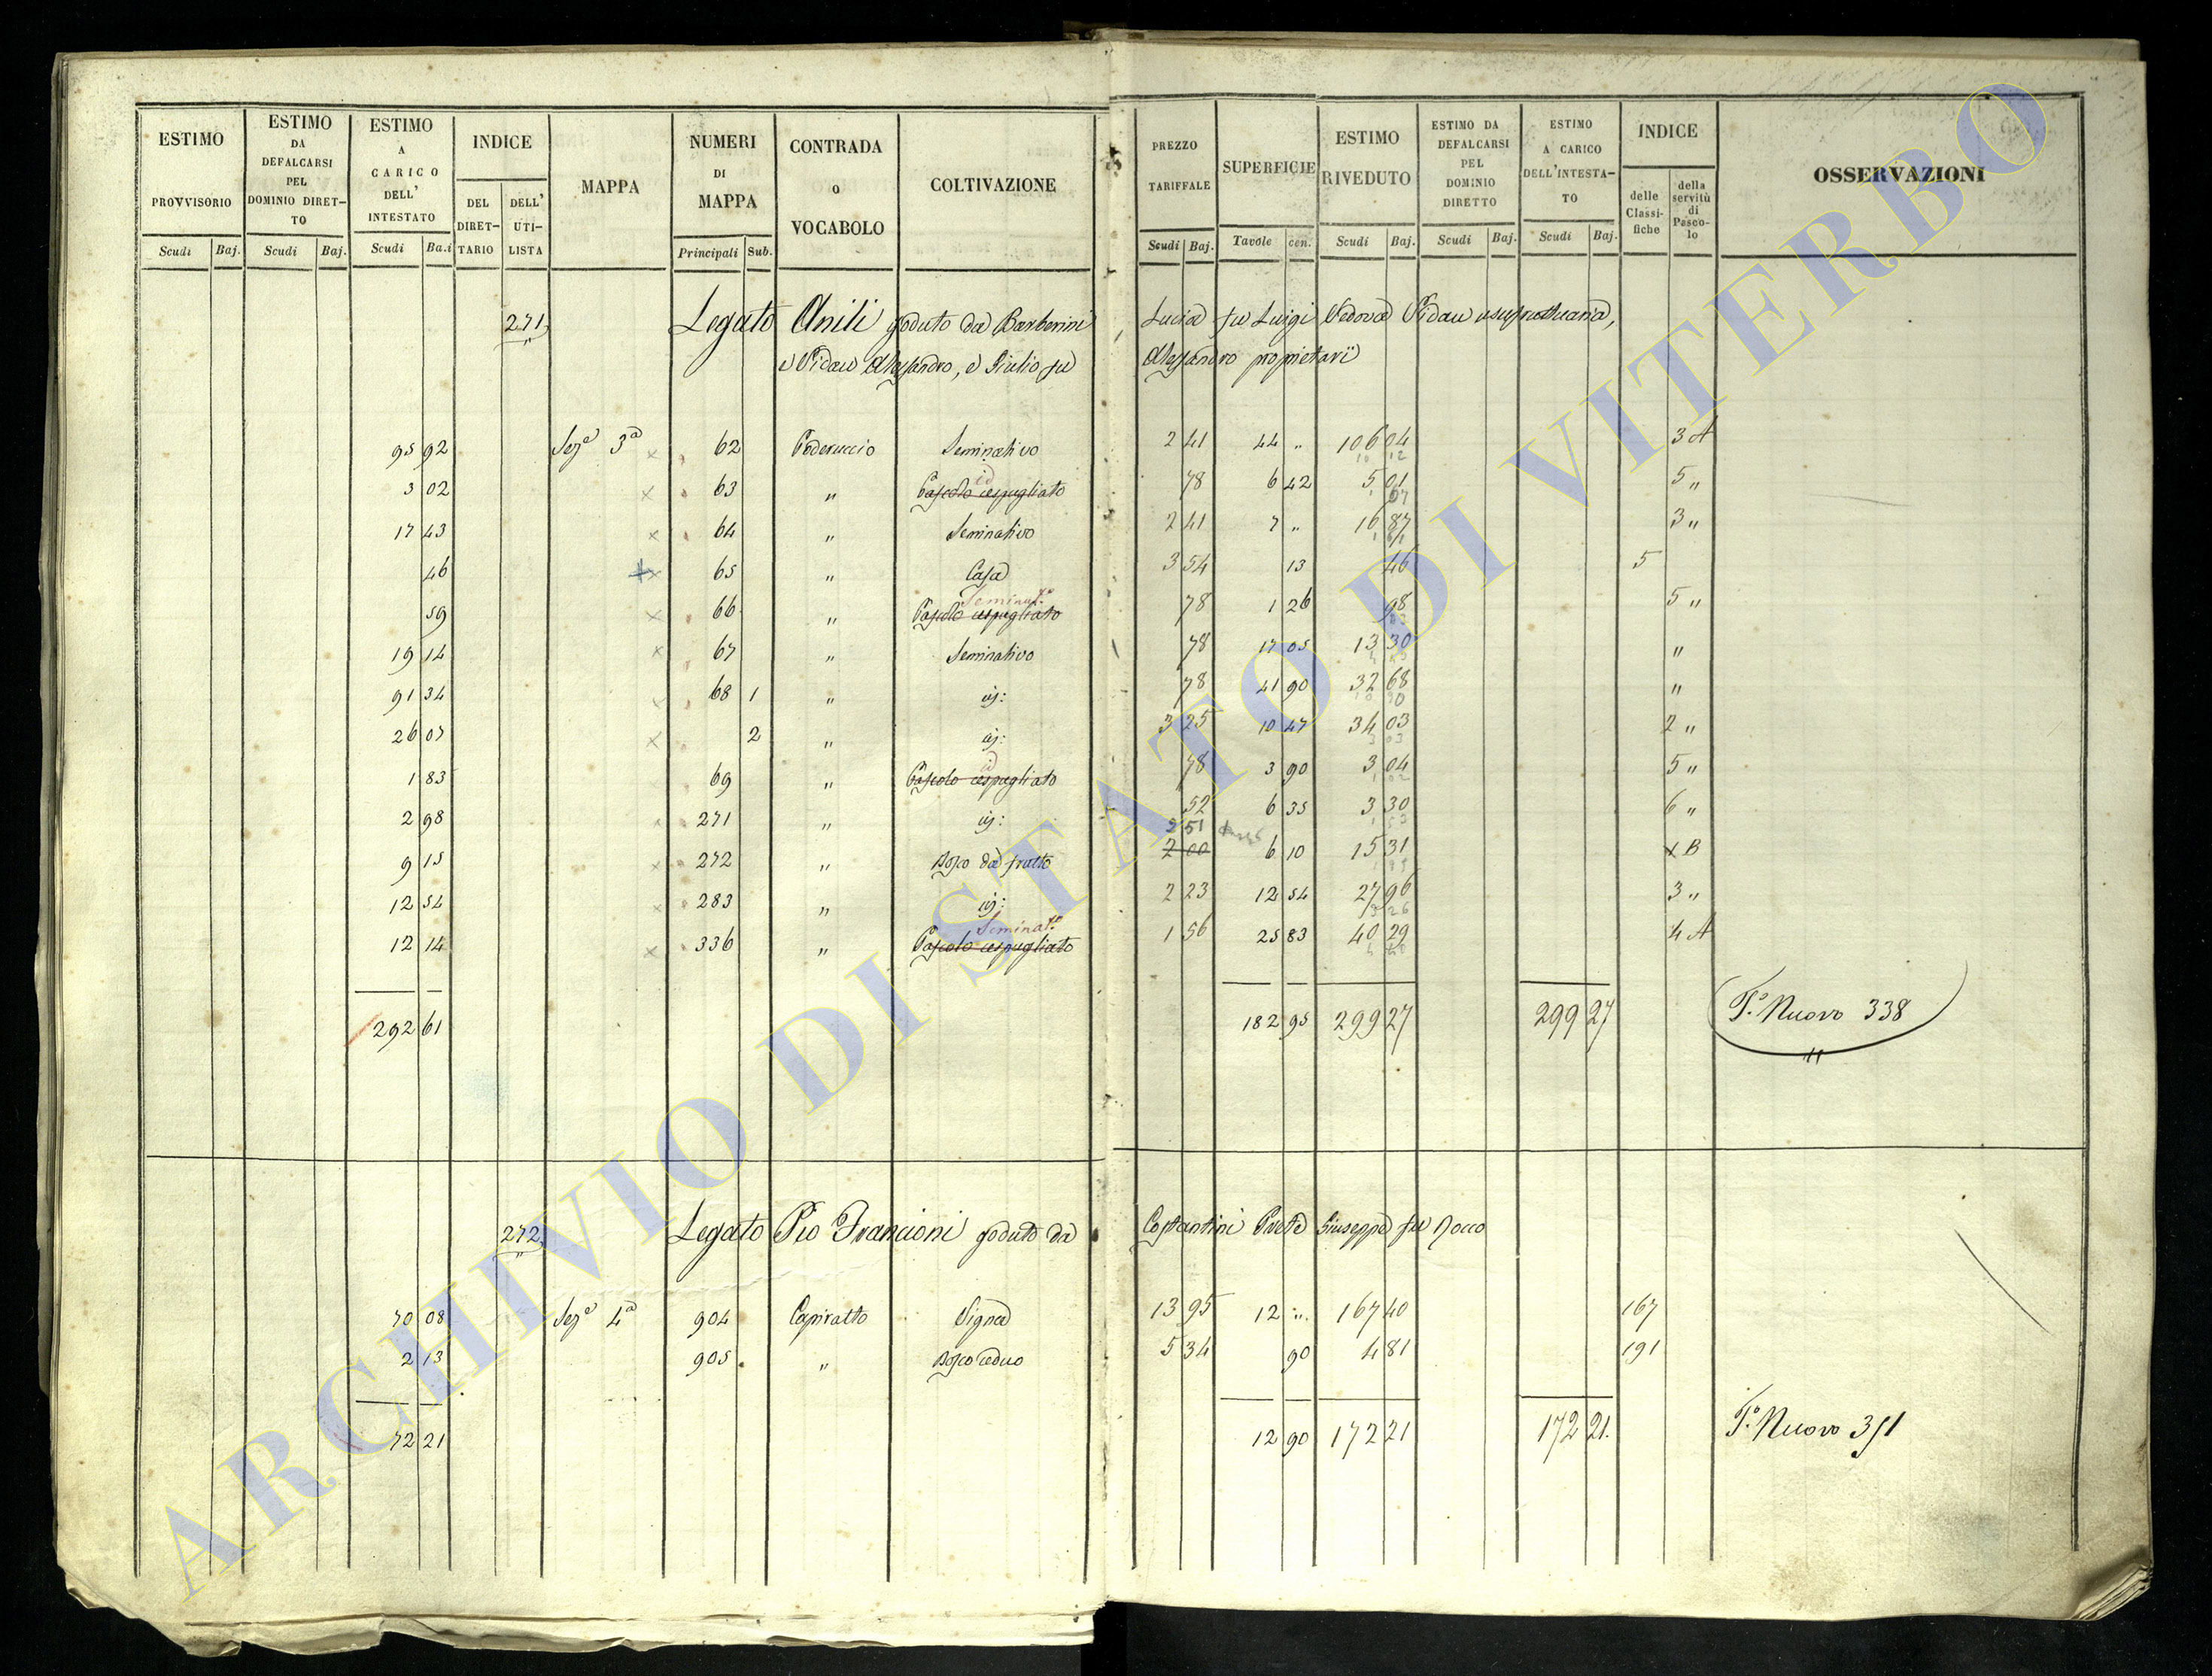 ESTIMO PROVVISORIO Scudi Baj.
ESTIMO DA DEFALCARSI PEL DOMINIO DIRETTO Scudi Baj.
ESTIMO A CARICO DELL' INTESTATO Scudi Ba.i
INDICE DEL DIRETTARIO DELL' UTILISTA
MAPPA
NUMERI DI MAPPA Principali Sub.
CONTRADA o VOCABOLO
COLTIVAZIONE
PREZZO TARIFFALE Scudi Baj.
SUPERFICIE Tavole cen.
ESTIMO RIVEDUTO Scudi Baj.
ESTIMO DA DEFALCARSI PEL DOMINIO DIRETTO Scudi Baj.
ESTIMO A CARICO DELL'INTESTATO Scudi Baj.
INDICE delle Classifiche della servitù di Pascolo
OSSERVAZIONI
271, Legato Anili goduto da Barberini Lucia fu Luigi Vedova Vidau usufruttuaria,
e Vidau Alessandro, e Giulio fu Alessandro proprietarii
95 92 Sez.a 3a 62 Poderuccio Seminativo 2 41 44 " 106 04 3 A
3 02 63 " id Pascolo cespugliato 78 6 42 5 01 5 "
17 43 64 " Seminativo 2 41 7 " 16 87 3 "
46 65 " Casa 3 54 13 46 5
59 66 " Seminat.o Pascolo cespugliato 78 1 26 98 5 "
19 14 67 " Seminativo 78 17 05 13 30 "
91 34 68 1 " id: 78 41 90 32 68 "
26 07 2 " id: 3 25 10 47 34 03 2 "
1 83 69 " id Pascolo cespugliato 78 3 90 3 04 5 "
2 98 271 " id: 52 6 35 3 30 6 "
9 15 272 " Bosco da frutto 2 51 2 00 6 10 15 31 B
12 54 283 " id: 2 23 12 54 27 96 3 "
12 14 336 " Seminat.o Pascolo cespugliato 1 56 25 83 40 29 4 A
292 61 182 95 299 27 299 27 F.o Nuovo 338
272, Legato Pio Francioni goduto da Costantini Prete Giuseppe fu Rocco
70 08 Sez.a 4a 904 Capiratto Vigna 13 95 12 " 167 40 167
2 13 905 " Bosco ceduo 5 34 90 4 81 191
72 21 12 90 172 21 172 21. F.o Nuovo 351
ARCHIVIO DI STATO DI VITERBO